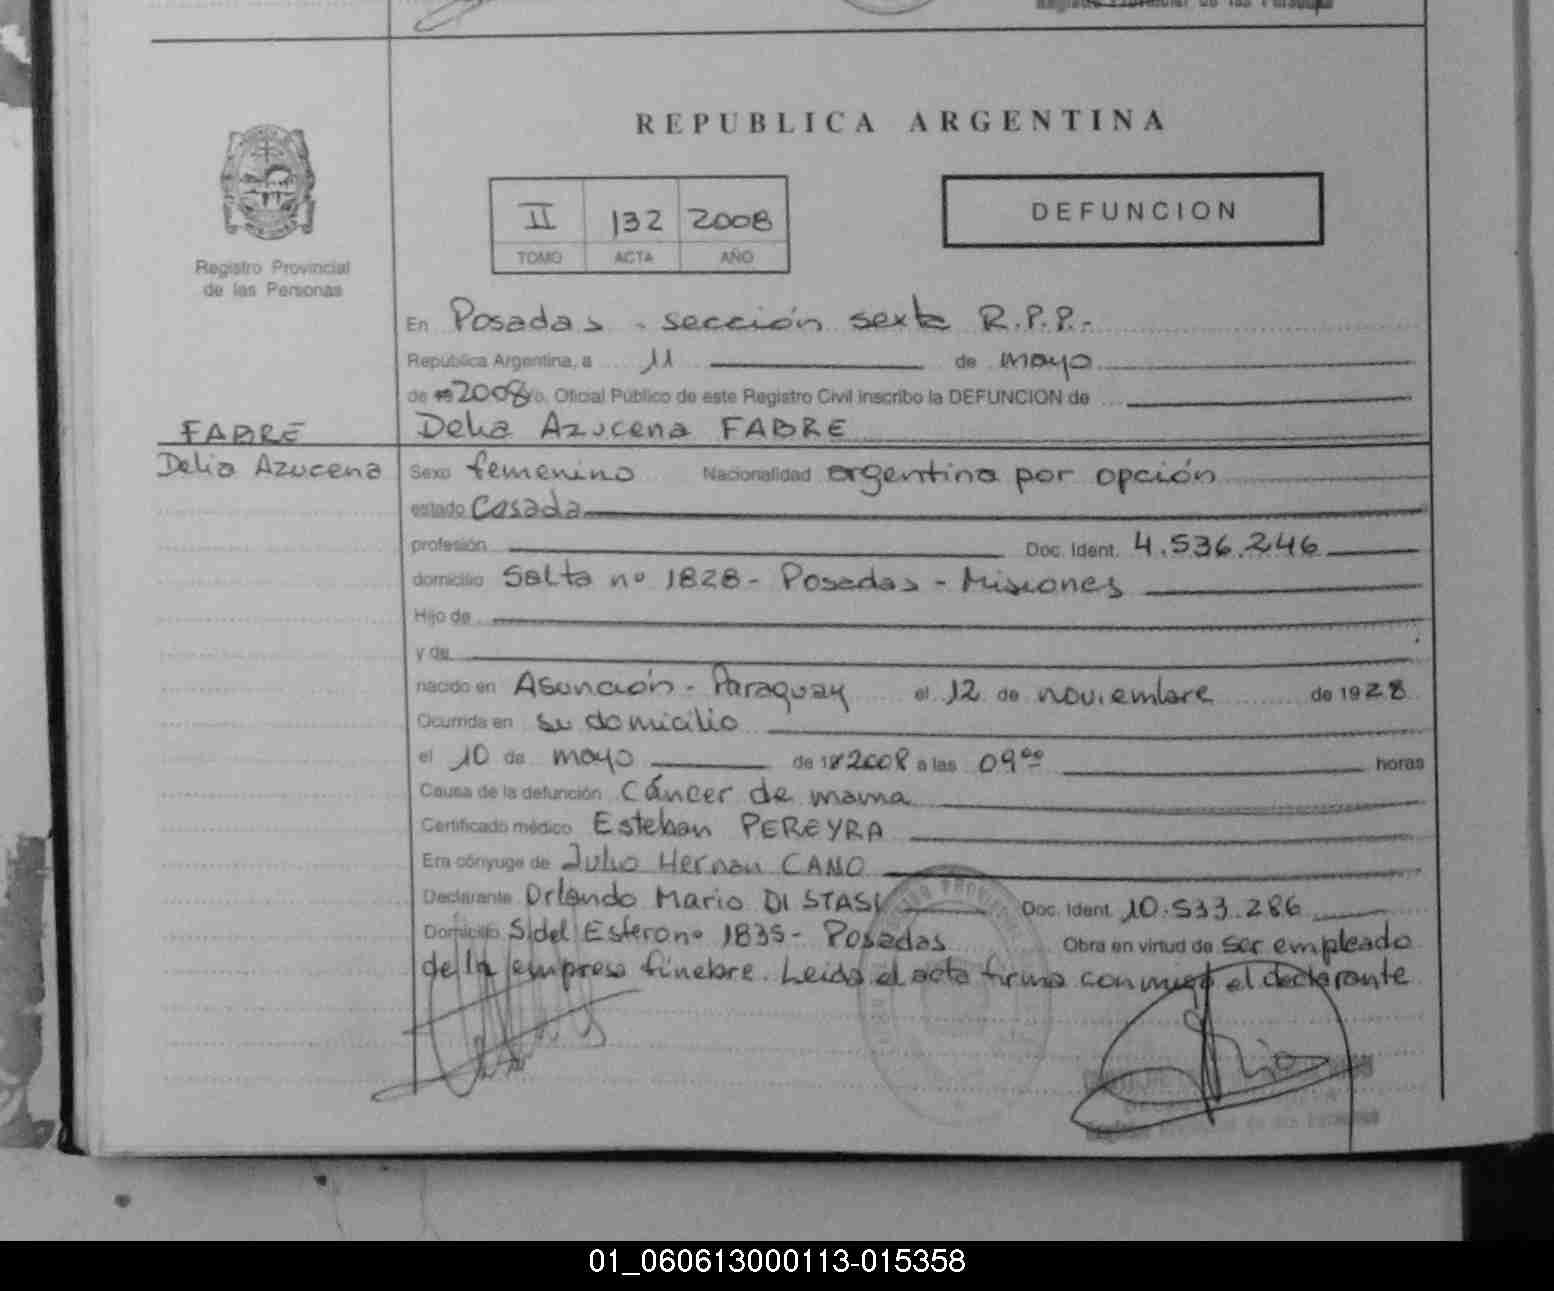 REPUBLICA ARGENTINA
II 132 2008
TOMO ACTA AÑO
DEFUNCION
Registro Provincial
de las Personas
En Posadas - sección sexta R.P.P.-
República Argentina, a 11 de mayo
de 2008 yo, Oficial Público de este Registro Civil inscribo la DEFUNCION de
Delia Azucena FABRE
FABRE
Delia Azucena
Sexo femenino Nacionalidad argentina por opción
estado Casada
profesión Doc. Ident. 4.536.246
domicilio Salta nº 1828 - Posadas - Misiones
Hijo de
y de
nacido en Asunción - Paraguay el 12 de noviembre de 1928
Ocurrida en su domicilio
el 10 de mayo de 2008 a las 09 ºº horas
Causa de la defunción Cáncer de mama
Certificado médico Esteban PEREYRA
Era cónyuge de Julio Hernan CANO
Declarante Orlando Mario DI STASI Doc. Ident. 10.533.286
Domicilio S/del Estero nº 1835 - Posadas Obra en virtud de ser empleado
de la empresa fúnebre. Leida el acta firma conmigo el declarante
01_060613000113-015358